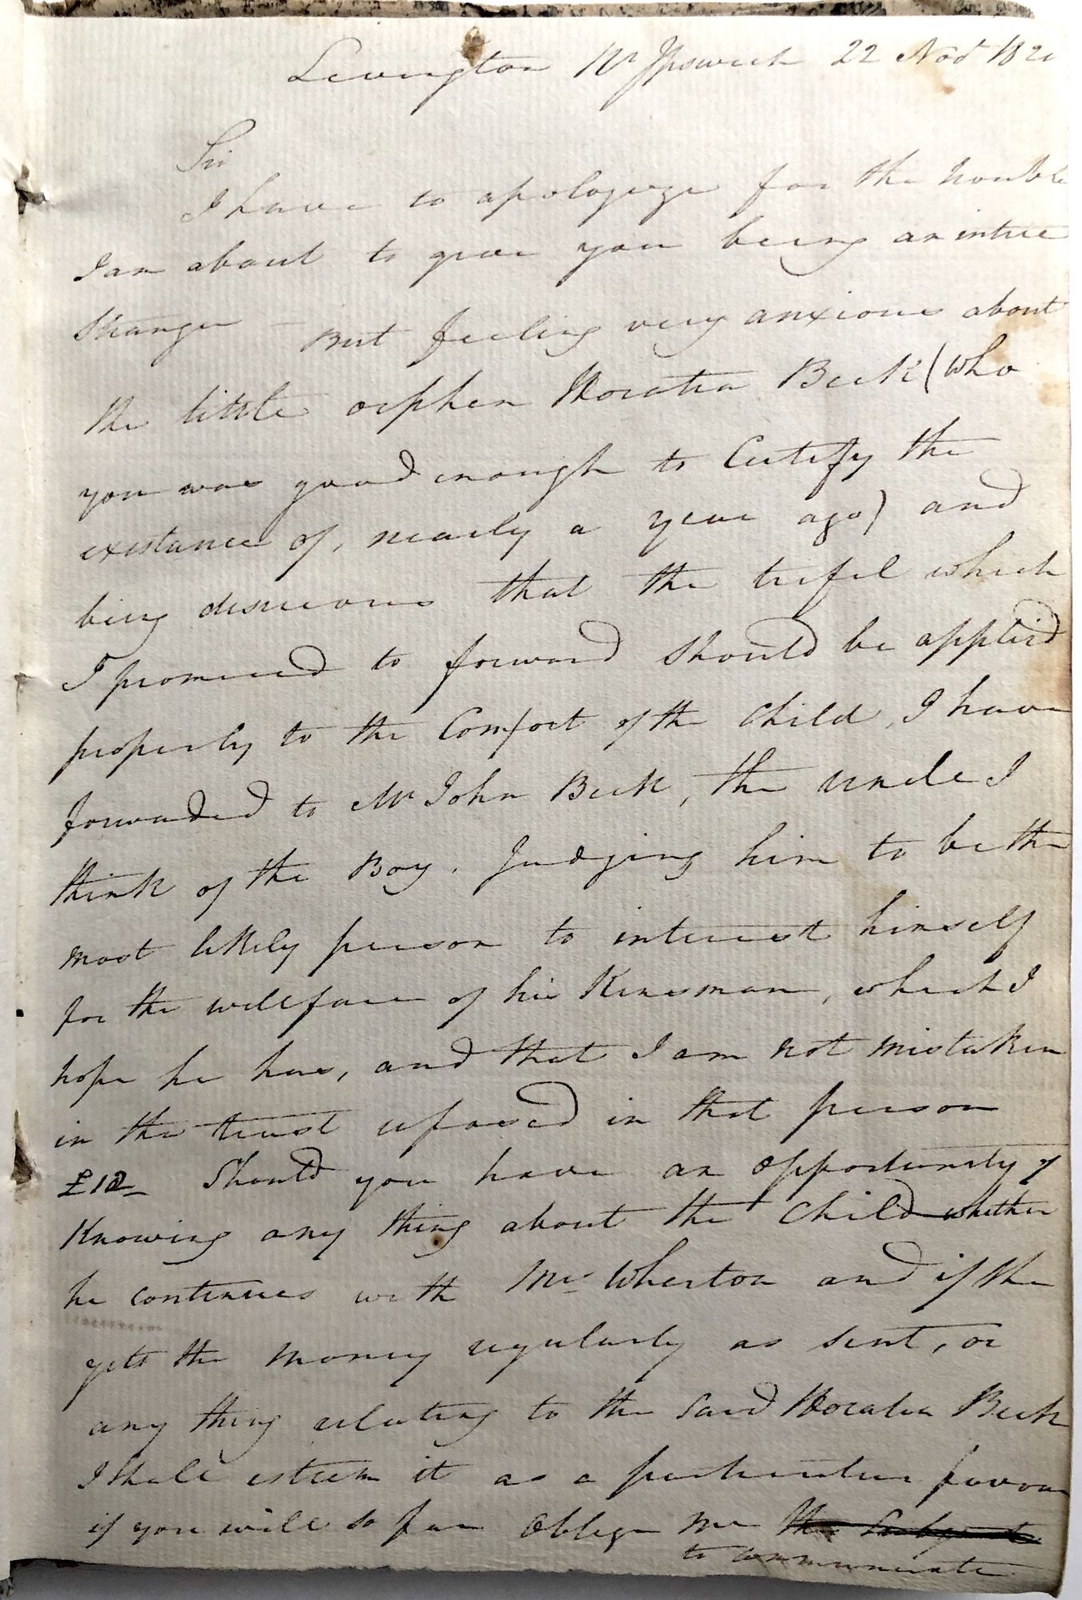 Levington Nr Ipswich 22 Nov 182
Sir
I have to apologize for the trouble
I am about to give you being an intire
Stranger - But feeling very anxious about
the little orphen Horatia Beek (who
you was good enough to Certify the
existance of, nearly a year ago) and
being desireous that the trifel which
I promised to forward should be applied
properly to the Comfort of the Child, I have
forwarded to Mr John Beek, the uncle I
think of the Boy. Judging him to be the
most likely person to interest himself
for the wellfare of his Kinsman, which I
hope he has, and that I am not mistaken
in the trust reposed in that person
£12 Should you have an opportunity of
Knowing any thing about the Child whether
he continues with Mrs Wharton and if she
gets the money regularly as sent, or
any thing relating to the said Horatia Beek
I shall esteem it as a particular favour
if you will so far oblige me the Subject
to communicate